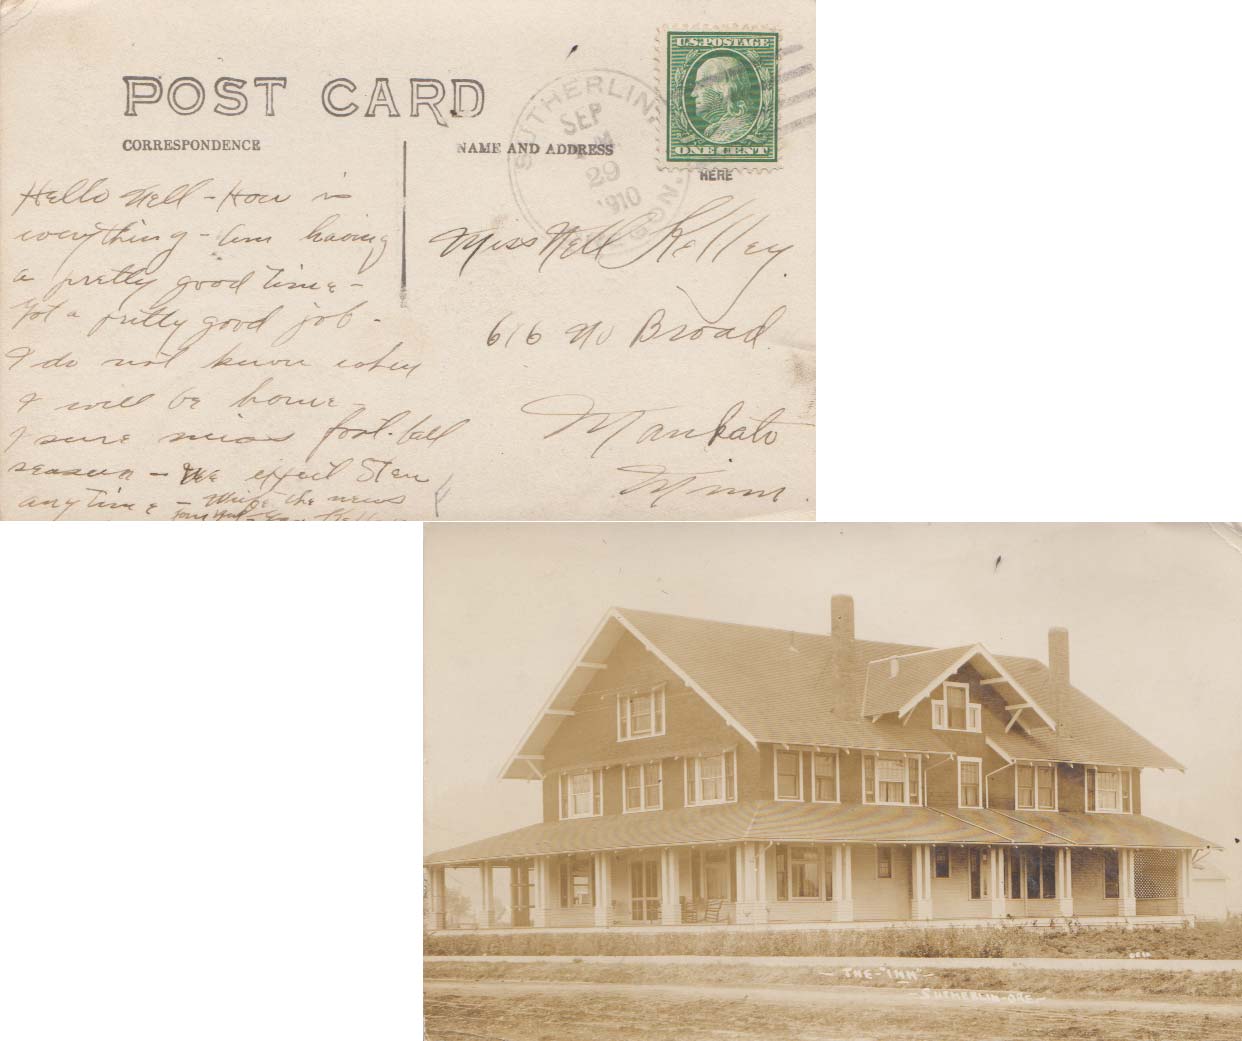 POST CARD
CORRESPONDENCE
NAME AND ADDRESS
U.S. POSTAGE
ONE CENT
HERE
SUTHERLIN, OREGON.
SEP
29
1910
Hello Nell - How is
everything - Am having
a pretty good time -
Got a pretty good job -
I do not know when
I will be home -
I sure miss foot-ball
season - We expect Sten
anytime - Write the news
Miss Nell Kelley
616 No Broad
Mankato
Minn.
- THE - "INN" -
- SUTHERLIN - ORE. -